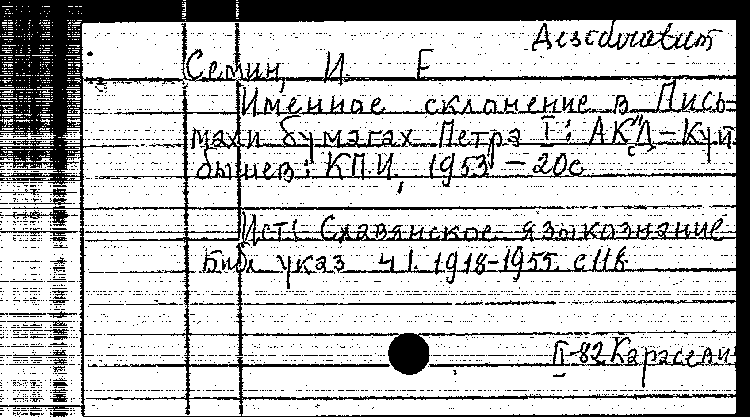 Desideratum
Семин, И. Е
Именное склонение в Пись-
мах и бумагах Петра I: АКД - Куй
бышев: КПИ, 1953 - 20с
Ист: Славянское языкознание
Библ указ ч I. 1918-1955. с 116
II-82 Карасели